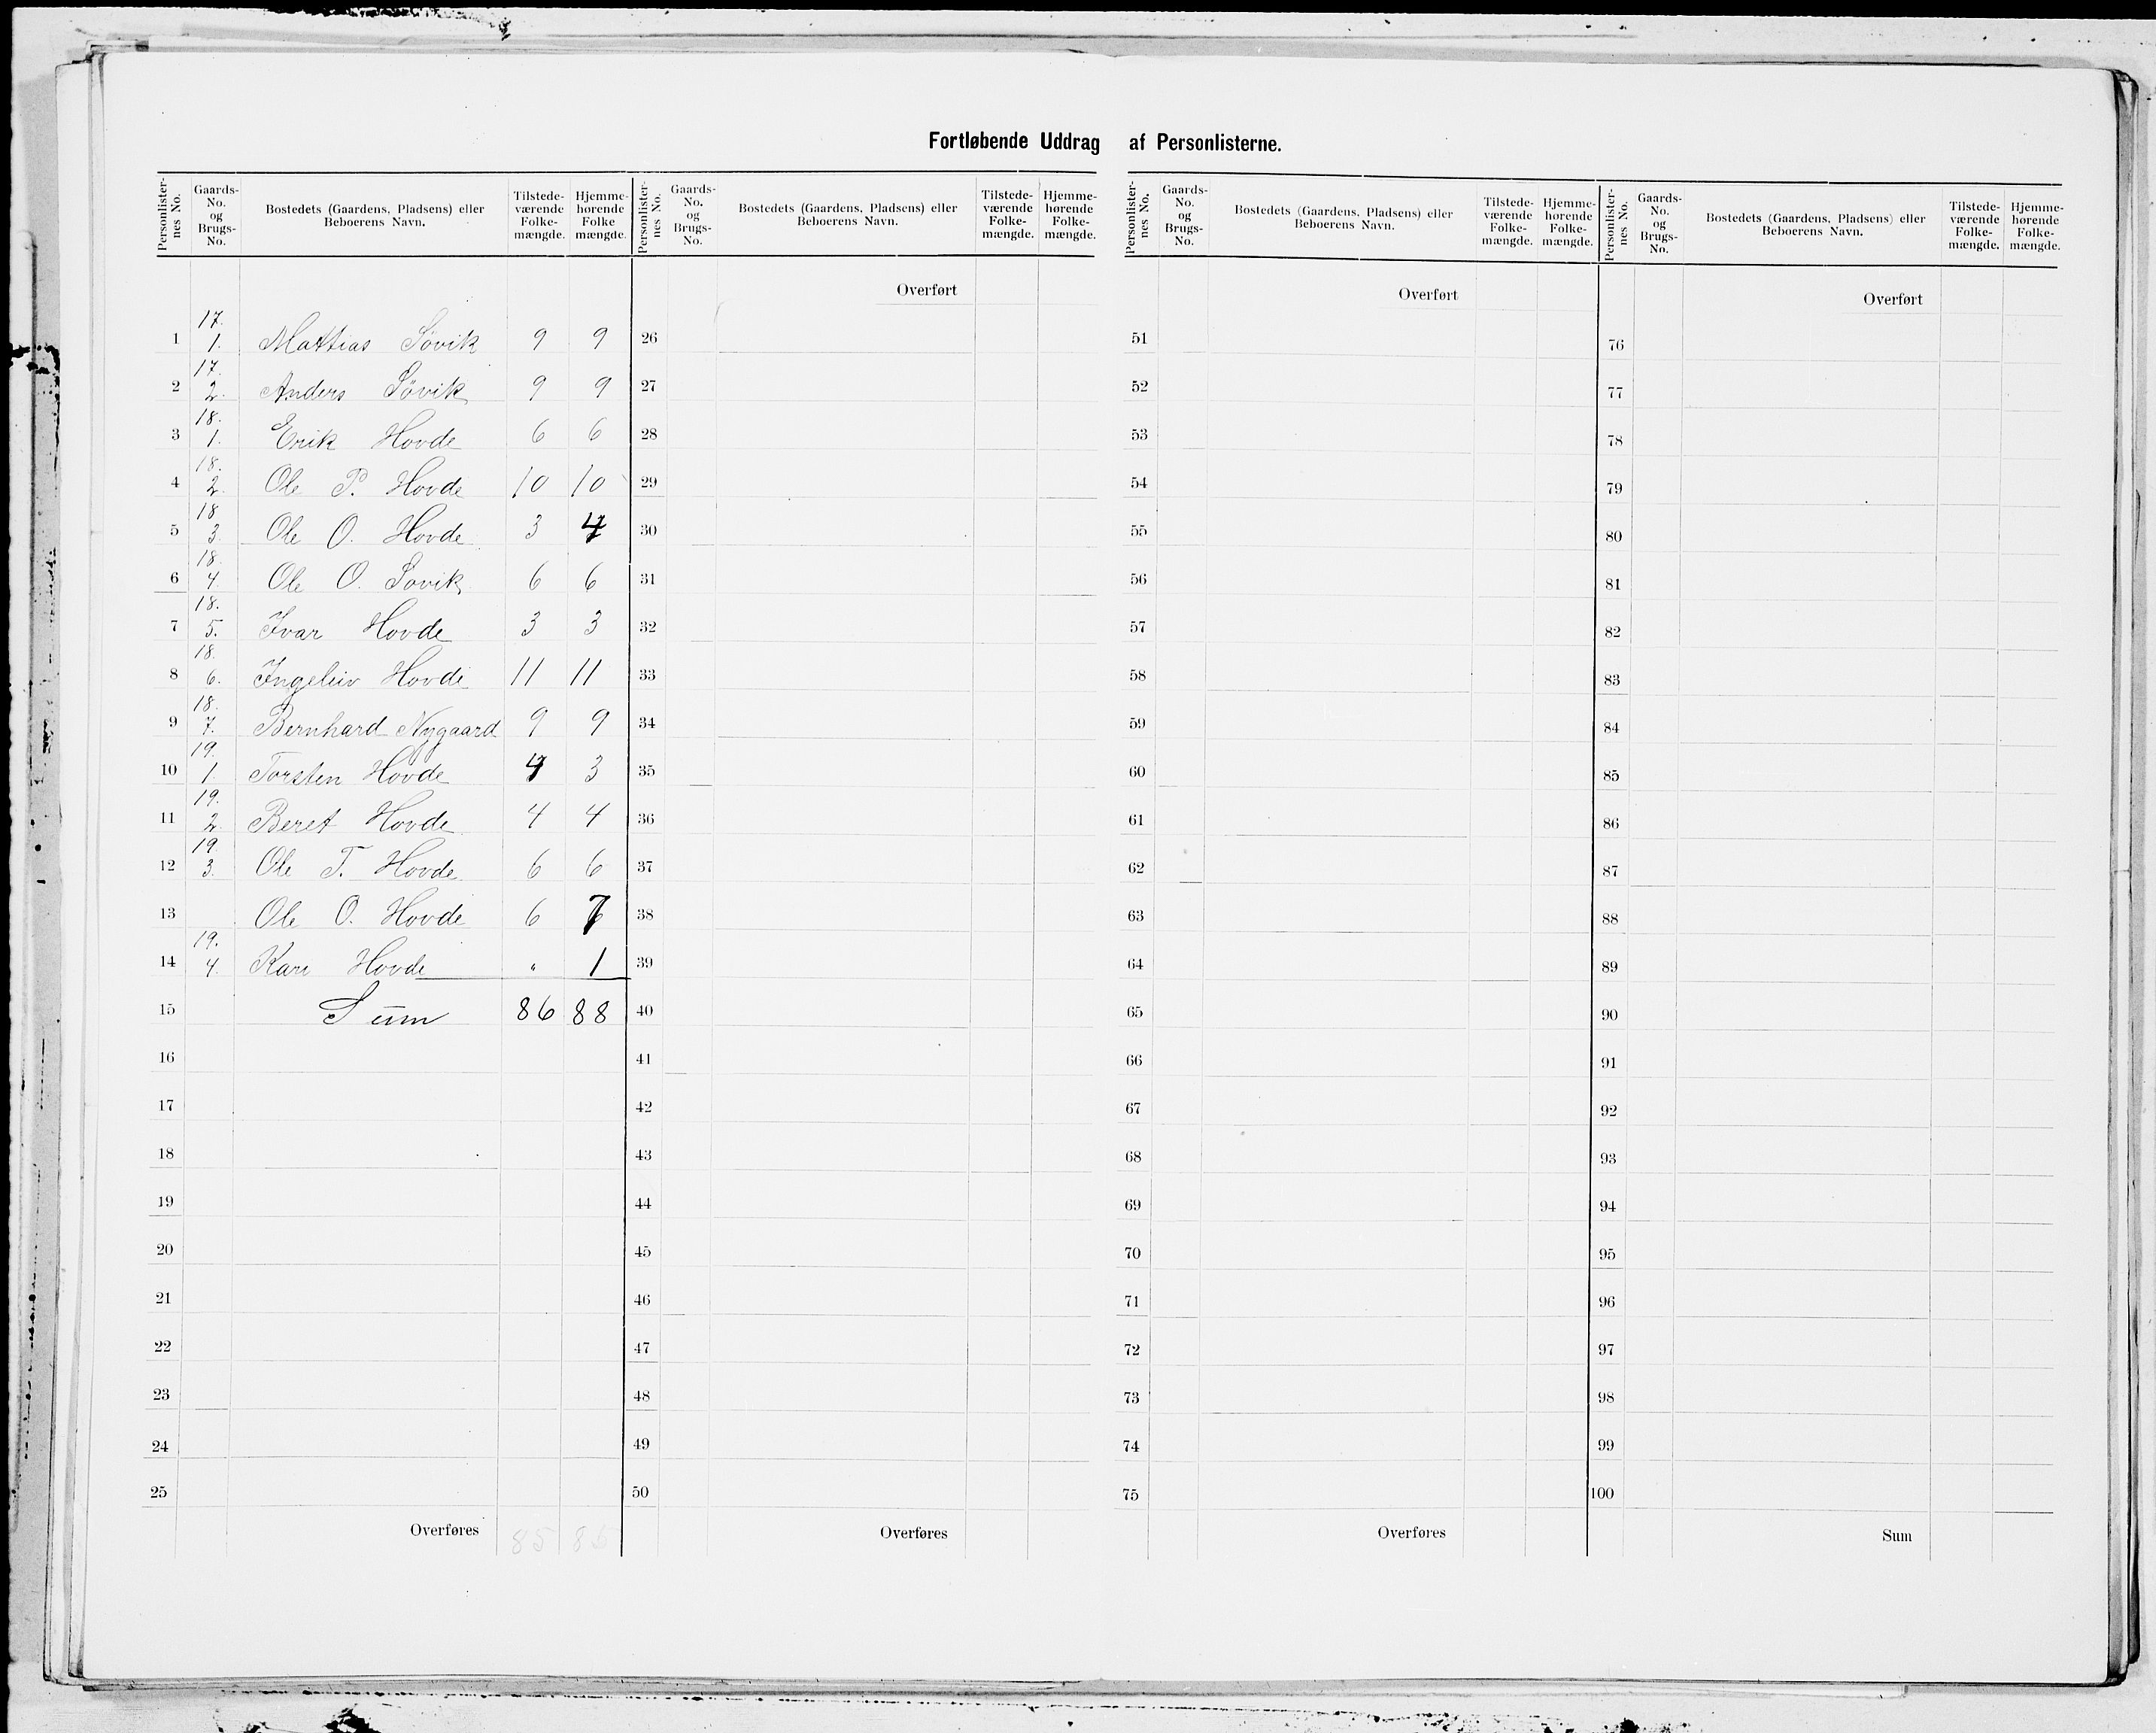 Fortløbende Uddrag af Personlisterne.
Personlister-nes No. | Gaards-No. og Brugs-No. | Bostedets (Gaardens, Pladsens) eller Beboerens Navn. | Tilstede-værende Folke-mængde. | Hjemme-hørende Folke mængde.
1 | 17. 1. | Mattias Søvik | 9 | 9
2 | 17. 2. | Anders Søvik | 9 | 9
3 | 18. 1. | Erik Hovde | 6 | 6
4 | 18. 2. | Ole P. Hovde | 10 | 10
5 | 18 3. | Ole O. Hovde | 3 | 4
6 | 18. 4. | Ole O. Søvik | 6 | 6
7 | 18. 5. | Ivar Hovde | 3 | 3
8 | 18. 6. | Ingeleiv Hovde | 11 | 11
9 | 18. 7. | Bernhard Nygaard | 9 | 9
10 | 19 1. | Torsten Hovde | 4 | 3
11 | 19. 2. | Beret Hovde | 4 | 4
12 | 19. 3. | Ole T. Hovde | 6 | 6
13 | Ole O. Hovde | 6 | 7
14 | 19. 4. | Kari Hovde | " | 1
15 | Sum | 86 | 88
16
17
18
19
20
21
22
23
24
25
Overføres 85
Personlister-nes No. | Gaards-No. og Brugs-No. | Bostedets (Gaardens, Pladsens) eller Beboerens Navn. | Tilstede-værende Folke-mængde. | Hjemme-hørende Folke-mængde.
Overført
26
27
28
29
30
31
32
33
34
35
36
37
38
39
40
41
42
43
44
45
46
47
48
49
50
Overføres
Personlister-nes No. | Gaards-No. og Brugs-No. | Bostedets (Gaardens, Pladsens) eller Beboerens Navn. | Tilstede-værende Folke-mængde. | Hjemme-hørende Folke-mængde.
Overført
51
52
53
54
55
56
57
58
59
60
61
62
63
64
65
66
67
68
69
70
71
72
73
74
75
Overføres
Personlister-nes No. | Gaards-No. og Brugs-No. | Bostedets (Gaardens, Pladsens) eller Beboerens Navn. | Tilstede-værende Folke-mængde. | Hjemme-hørende Folke-mængde.
Overført
76
77
78
79
80
81
82
83
84
85
86
87
88
89
90
91
92
93
94
95
96
97
98
99
100
Sum